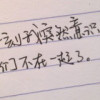 刻我突然意识
们不在一起了。